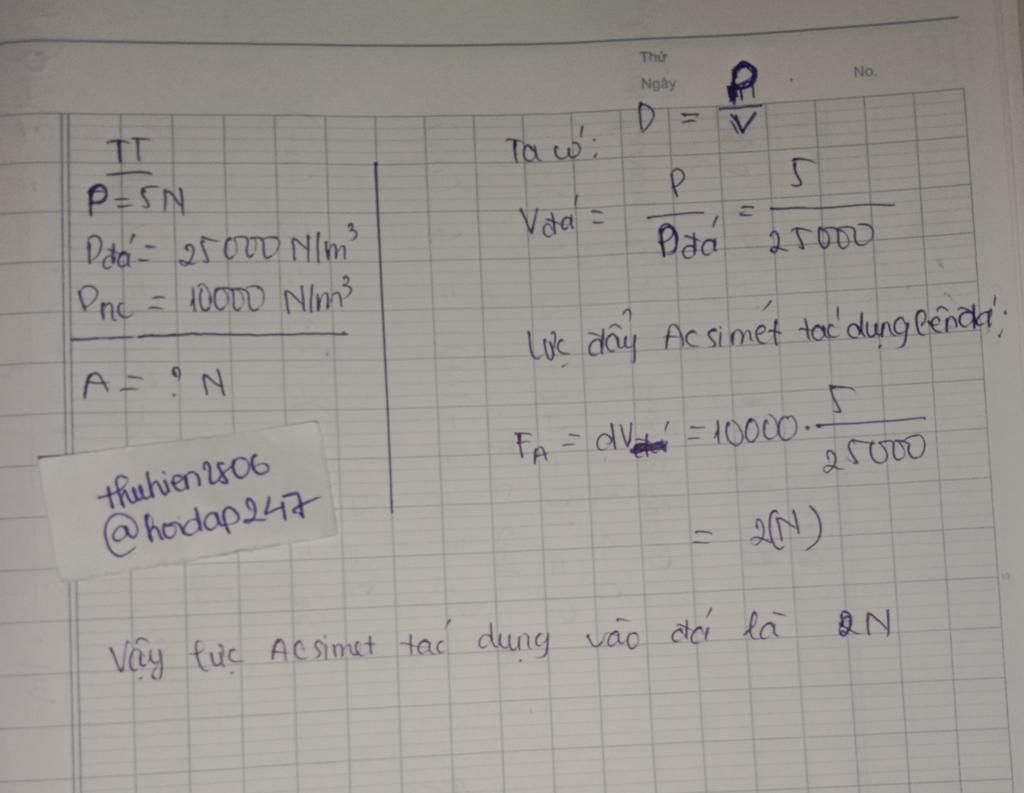 Thứ
Ngày
No.
TT
P = 5N
Dđá = 25000 N/m³
Dnc = 10000 N/m³
A = ? N
thuhien2806
@hoidap247
Ta có: D = P/V
Vđá = P/Dđá = 5/25000
Lực đẩy Acsimét tác dụng lên đá:
FA = dV = 10000 . 5/25000
= 2(N)
Vậy lực Acsimet tác dụng vào đá là 2N